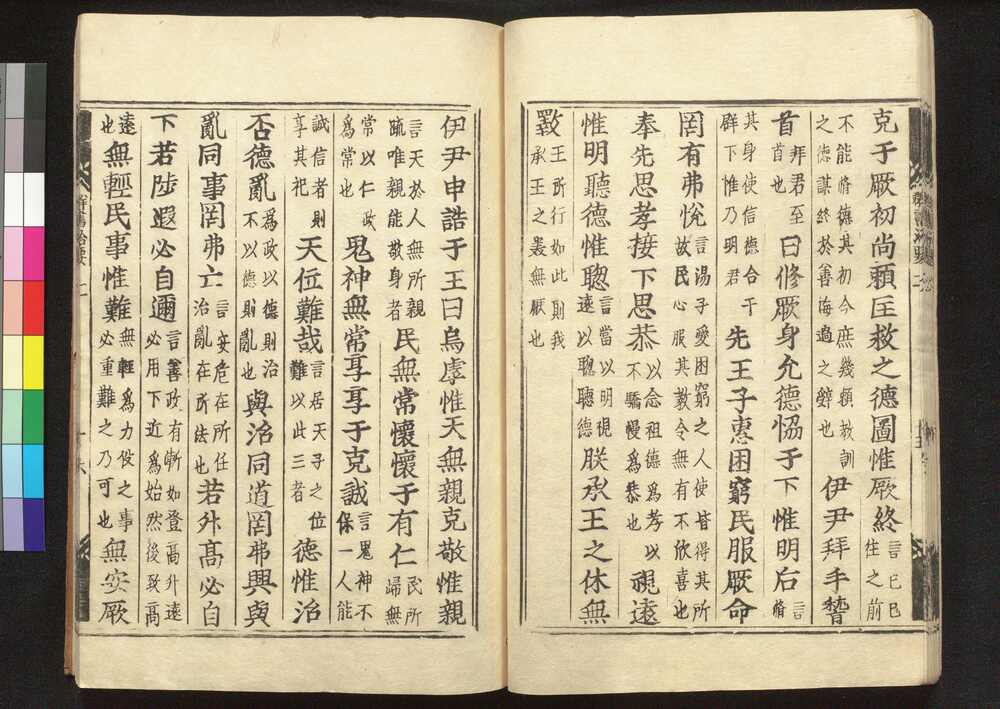 克于厥初尚頼匡救之德圖惟厥終言已已徃之前
不能脩德其初今庶幾頼教訓之德謀終於善悔過之辝也伊尹拜手𥡴
首拜君至首也曰修厥身允德恊于下惟明后言脩
其身使信德合于群下惟乃明君先王子惠困窮民服厥命
罔有弗悅言湯子愛困窮之人使皆得其所故民心服其教令無有不欣喜也
奉先思孝接下思恭以念祖德為孝以不驕慢為恭也視遠
惟明聽德惟聰言當以明視遠以聰聽德朕承王之休無
斁王所行如此則我承王之美無厭也
伊尹申誥于王曰烏虖惟天無親克敬惟親
言天於人無所親疏唯親能敬身者民無常懷懷于有仁民所歸無
常以仁政為常也鬼神無常享享于克誠言鬼神不保一人能
誠信者則享其祀天位難哉言居天子之位難以此三者德惟治
否德亂為政以德則治不以德則亂也與治同道罔弗興與
亂同事罔弗亡言安危在所任治亂在所法也若升高必自
下若陟遐必自邇言善政有漸如登高升遠必用下近為始然後致高
遠也無輕民事惟難無輕為力役之事必重難之乃可也無安厥